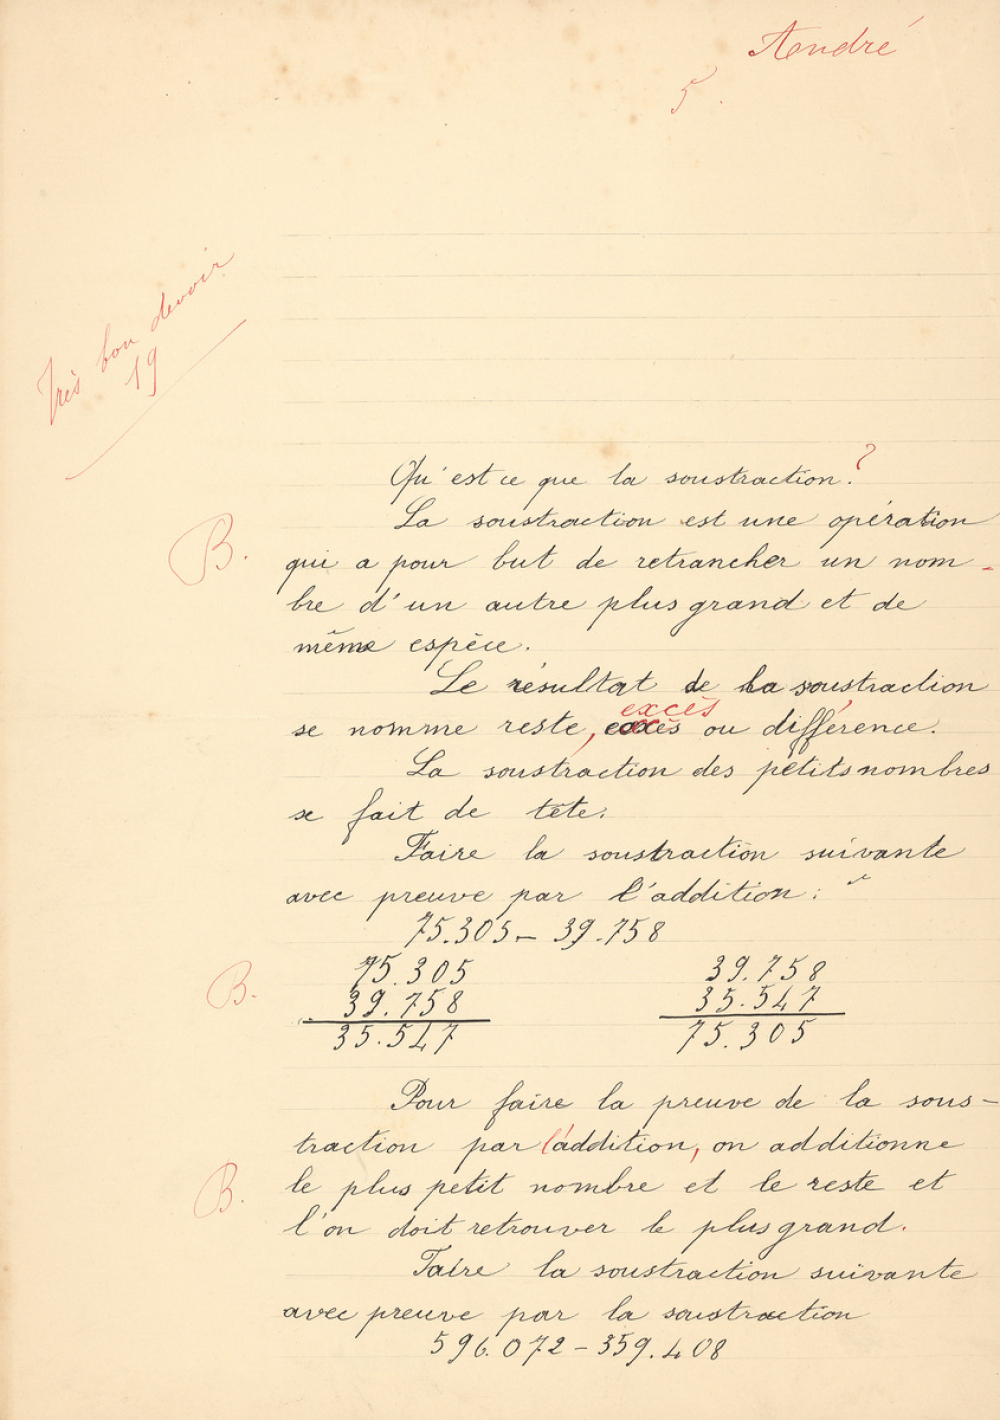 André
5
Très bon devoir
19
Qu'est ce que la soustraction?
La soustraction est une opération
B.
qui a pour but de retrancher un nom-
bre d'un autre plus grand et de
même espèce.
Le résultat de la soustraction
excès
se nomme reste, excès ou différence.
La soustraction des petits nombres
se fait de tête.
Faire la soustraction suivante
avec preuve par l'addition:
75.305 - 39.758
B.
75.305 39.758
39.758 35.547
35.547 75.305
Pour faire la preuve de la sous-
traction par l'addition, on additionne
B.
le plus petit nombre et le reste et
l'on doit retrouver le plus grand.
Faire la soustraction suivante
avec preuve par la soustraction
596.072 - 359.408